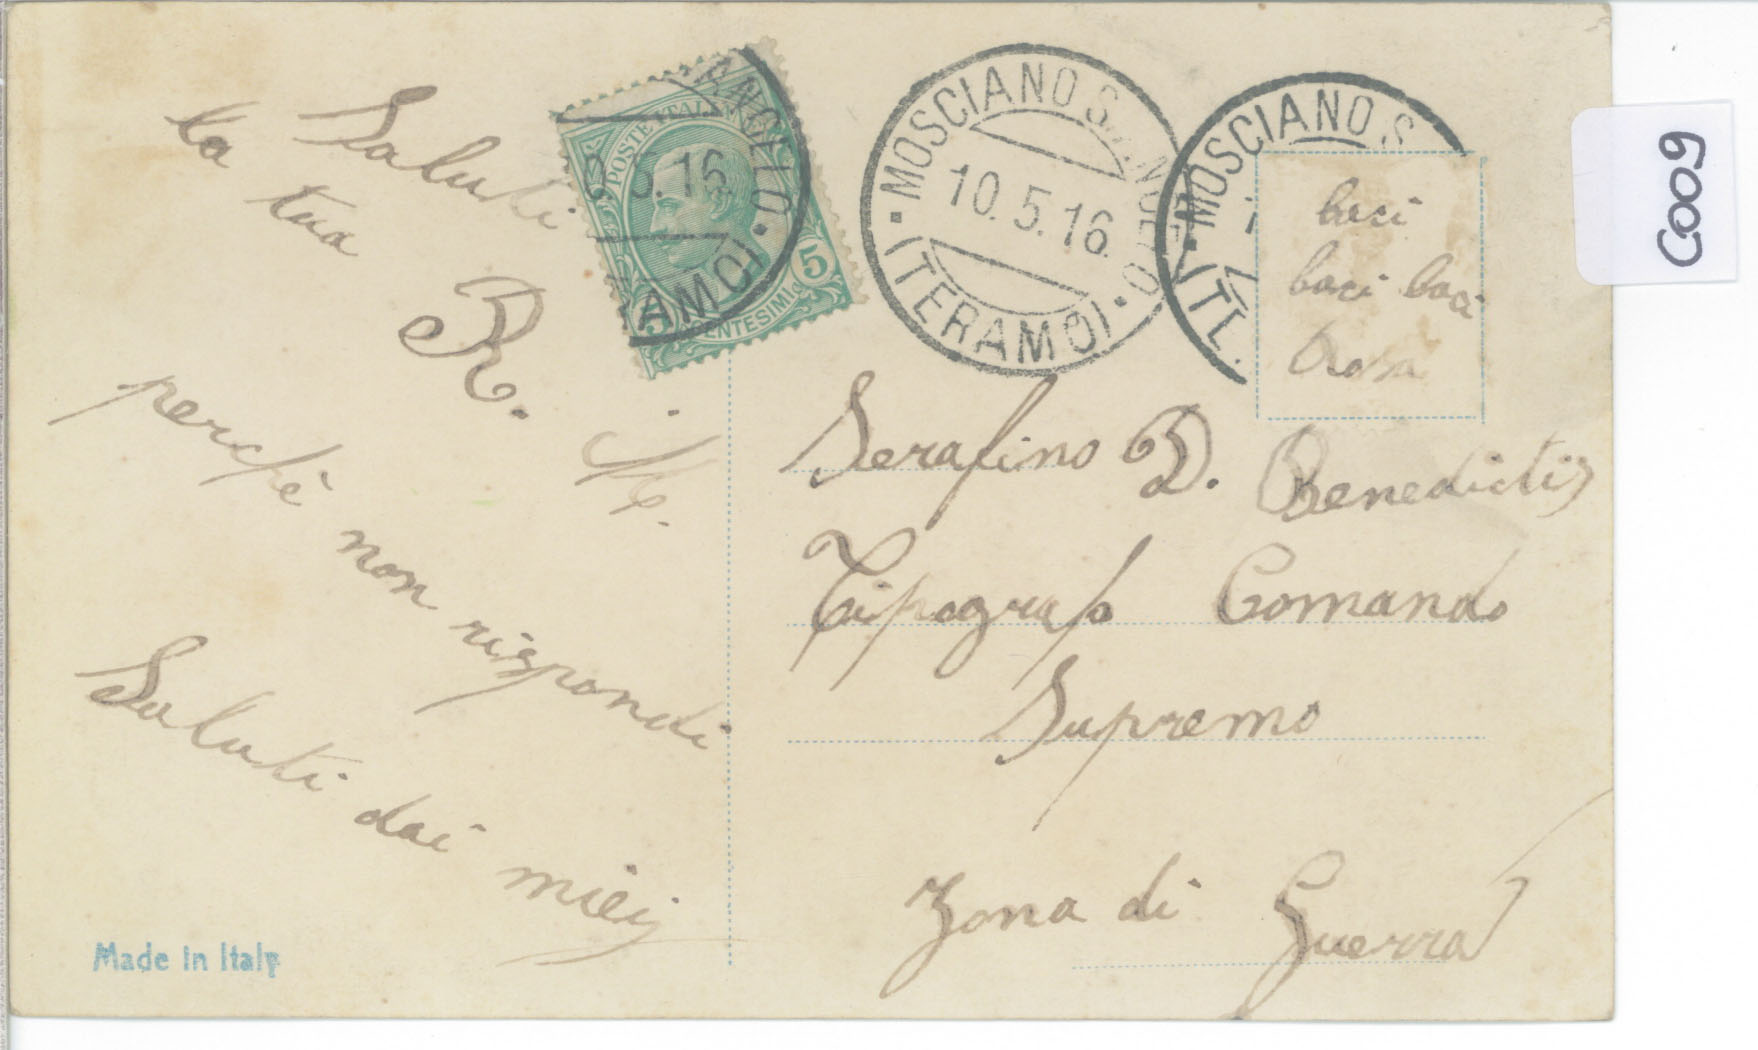 Saluti
la tua
R. M.
perchè non rispondi
Saluti dai miei
Made in Italy
POSTE ITALIANE
5
CENTESIMI
5
MOSCIANO S. ANGELO
10.5.16
(TERAMO)
MOSCIANO S.
baci
baci baci
Rosa
Serafino D. Benedictis
Tipografo Comando
Supremo
Zona di Guerra
C009